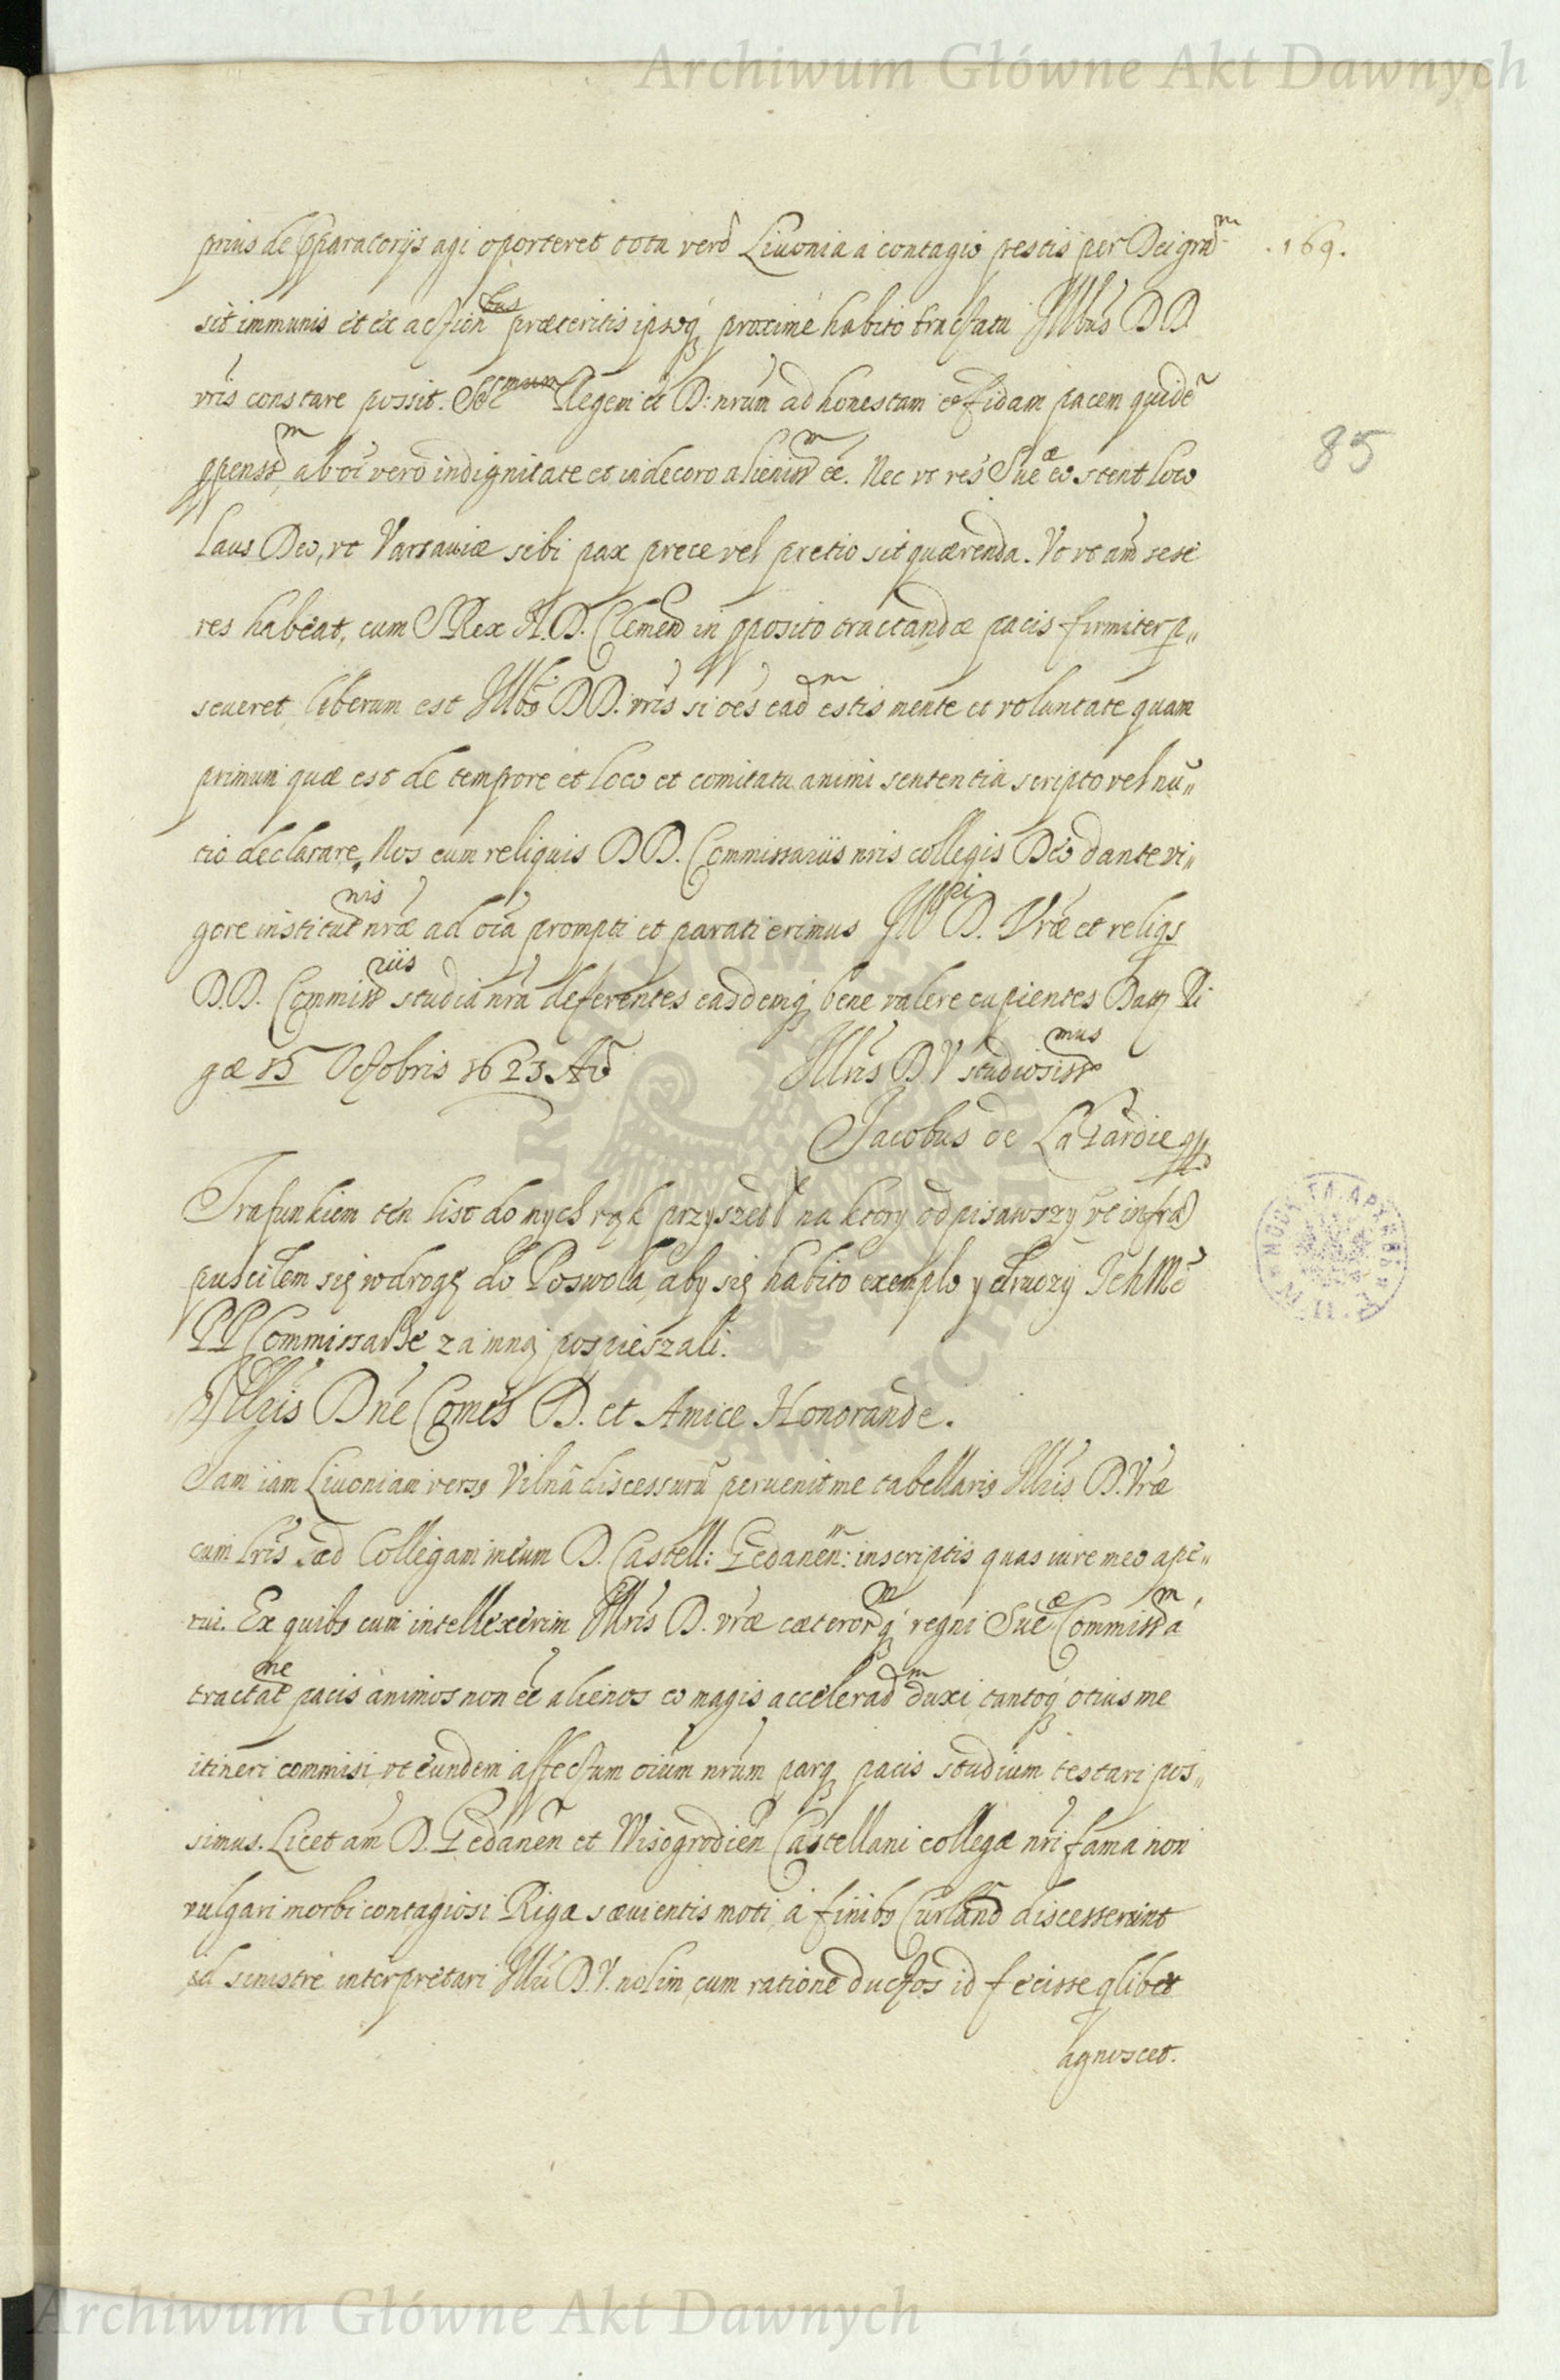 Archiwum Główne Akt Dawnych
prius de pparatorijs agi oporteret tota verò Livonia a contagio pestis per Dei gratm .169.
sit immunis et ex actionbus præteritis ipsoq proximè habito tractatu Illbus DD.
vris constare possit. Regem et D: nrum ad honestam et fidam pacem quidẽ
85
ppenssm ab oi verò indignitate et indecoro alienissm eẽ. Nec vt res Sueæ eo stent loco
laus Deo, vt Varsaviæ sibi pax prece vel pretio sit quærenda. Vt vt am̃ sese
res habeat, cum SRex N. D. Clemen in pposito tractandæ pacis firmiter p„
seueret, liberum est Illbs DD. vris si oẽs eadm estis mente et voluntate quam
primum quæ est de tempore et loco et comitatu animi sententia scripto vel nũ„
tio declarare, Nos cum reliquis DD. Commissariis nris collegis Deo dante vi„
gore institutnis nræ ad oia prompti et parati erimus Ill D. Vræ et reliqs
D.D. Commissriis studia nra deferentes easdemq bene valere cupientes Dat Ri
gæ 15 Octobris 1623 Aõ Illris D.V studiosissmus
Jacobus de La Gardie
Trafunkiem ten list do mych rąk przyszedł na ktory odpisawszy vt infra
pusciłem się wdrogę do Poswola, aby się habito exemplo y drudzy Ich Mć
PP Commissarze za mną pospieszali.
Illris Dne Comes D. et Amice Honorande.
Jam iam Livoniam verss Vilnã discessurũ peruenit me tabellaris Illris D. Vræ
cum lris ad Collegam meum D. Castell: Gedanen: inscriptis quas iure meo ape„
rui. Ex quibs cum intellexerim Illris D. vræ cæterorq regni Sueæ Commissm a
tractatne pacis animos non eẽ alienos eo magis acceleradm duxi, tantoq otius me
itineri commisi, vt eundem affectum oium nrum parq pacis studium testari pos„
simus. Licet am̃ D. Gedanen et Wisogrodien Castellani collegæ nri fama non
vulgari morbi contagiosi Rigæ sæuientis moti, a finibs Curland discesserint
id sinistrè interpretari Illri D.V. nolim, cum ratione ductos id fecisse qlibet
agnoscet.
Archiwum Główne Akt Dawnych